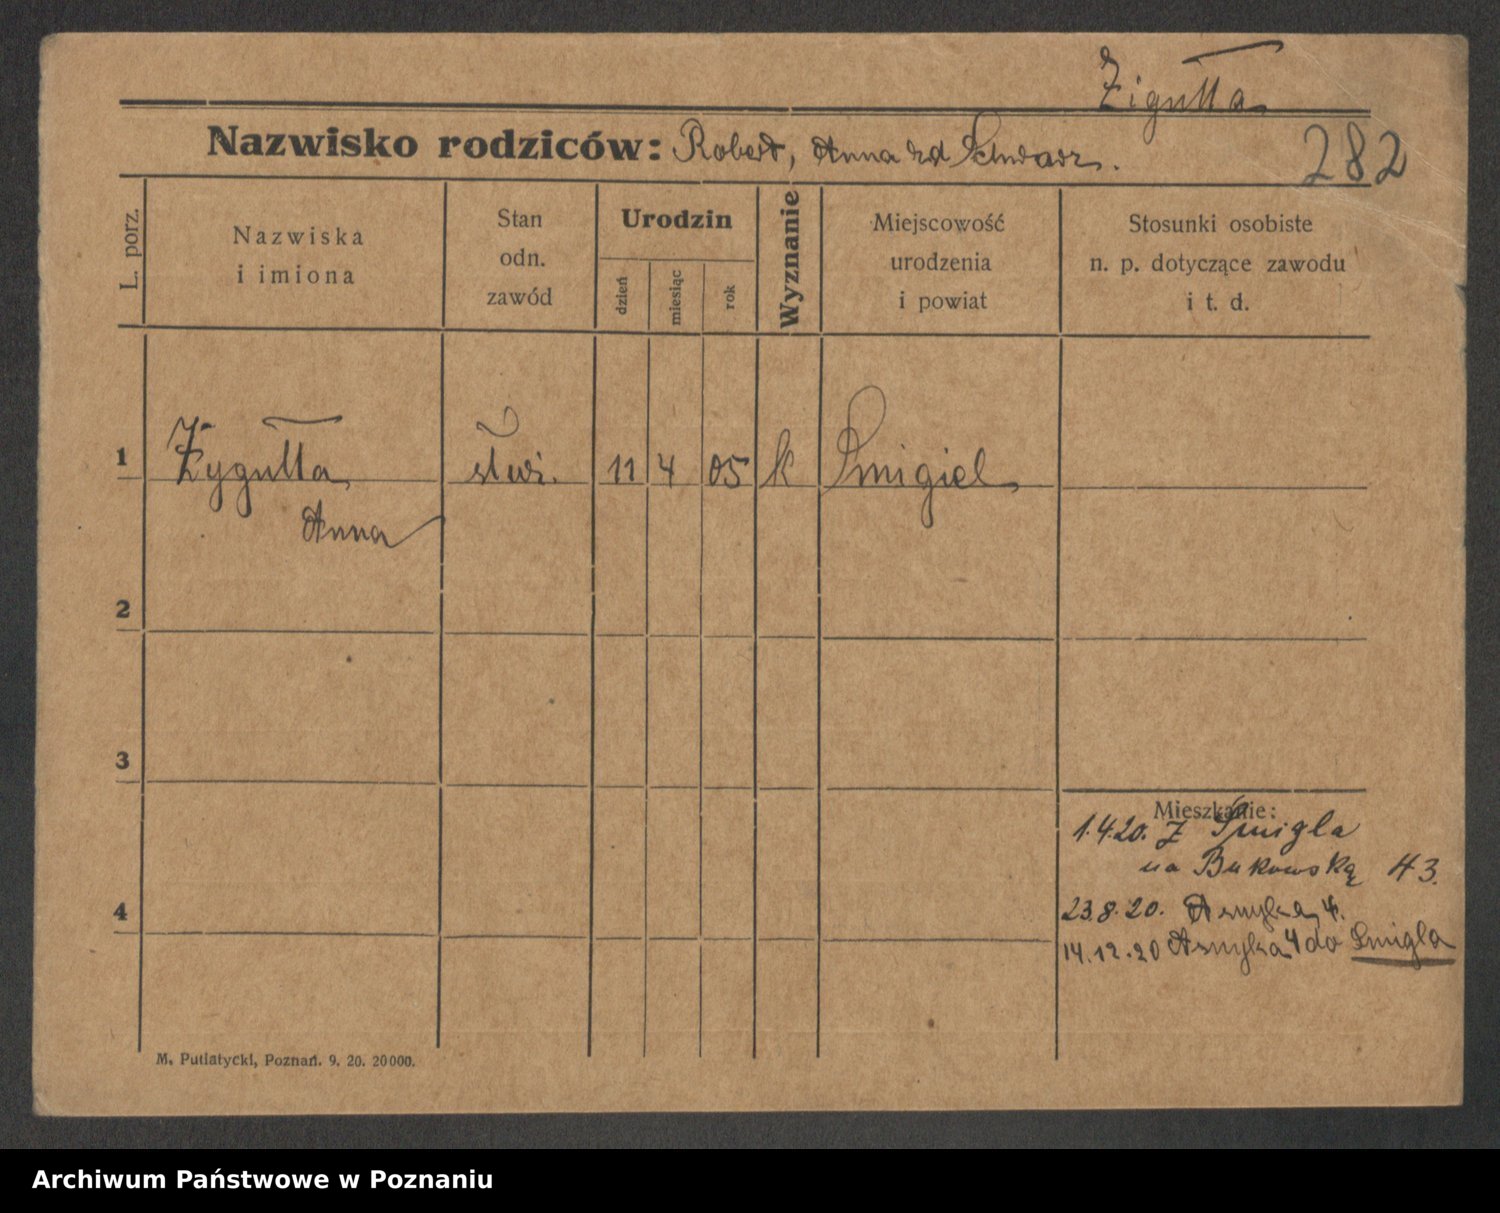 Zigułła
Nazwisko rodziców: Robert, Anna zd Schwarz.
282
L. porz.
Nazwiska
i imiona
Stan
odn.
zawód
Urodzin
dzień
miesiąc
rok
Wyznanie
Miejscowość
urodzenia
i powiat
Stosunki osobiste
n. p. dotyczące zawodu
i t. d.
1 Zygułła 11 4 05 k Śmigiel
Anna
2
3
Mieszkanie:
1.4.20. z Śmigla
na Bukowską 43.
4
23.8.20. Asnyka 4.
14.12.20 Asnyka 4 do Śmigla
M. Putiatycki, Poznań. 9. 20. 20000.
Archiwum Państwowe w Poznaniu